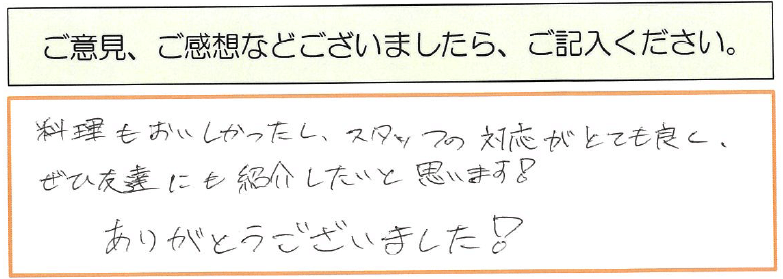 ご意見、ご感想などございましたら、ご記入ください。
料理もおいしかったし、スタッフの対応がとても良く、
ぜひ友達にも紹介したいと思います!
ありがとうございました!